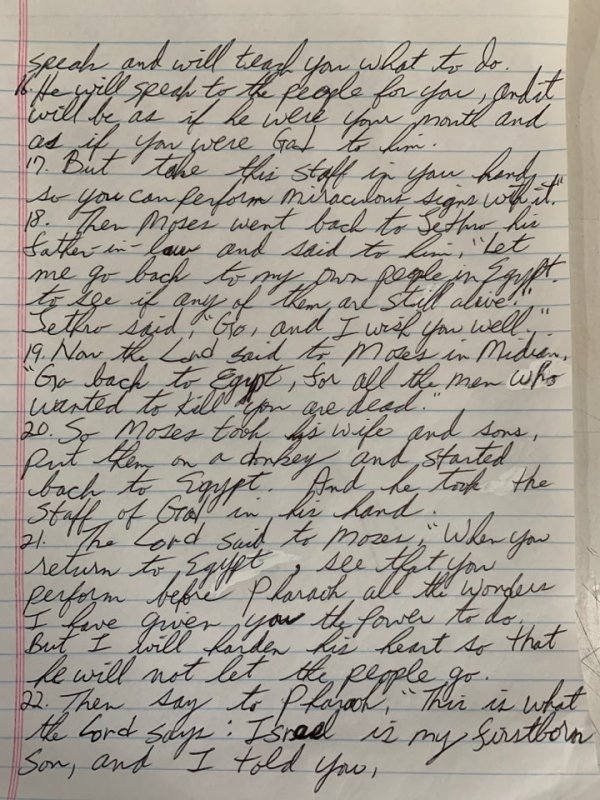 speak and will teach you what to do.
16. He will speak to the people for you, and it
will be as if he were your mouth and
as if you were God to him.
17. But take this staff in your hand
so you can perform miraculous signs with it."
18. Then Moses went back to Jethro his
father-in-law and said to him, "Let
me go back to my own people in Egypt
to see if any of them are still alive."
Jethro said, "Go, and I wish you well."
19. Now the Lord said to Moses in Midian,
"Go back to Egypt, for all the men who
wanted to kill you are dead."
20. So Moses took his wife and sons,
put them on a donkey and started
back to Egypt. And he took the
staff of God in his hand.
21. The Lord said to Moses, "When you
return to Egypt, see that you
perform before Pharaoh all the wonders
I have given you the power to do.
But I will harden his heart so that
he will not let the people go.
22. Then say to Pharaoh, "This is what
the Lord says: Israel is my firstborn
son, and I told you,